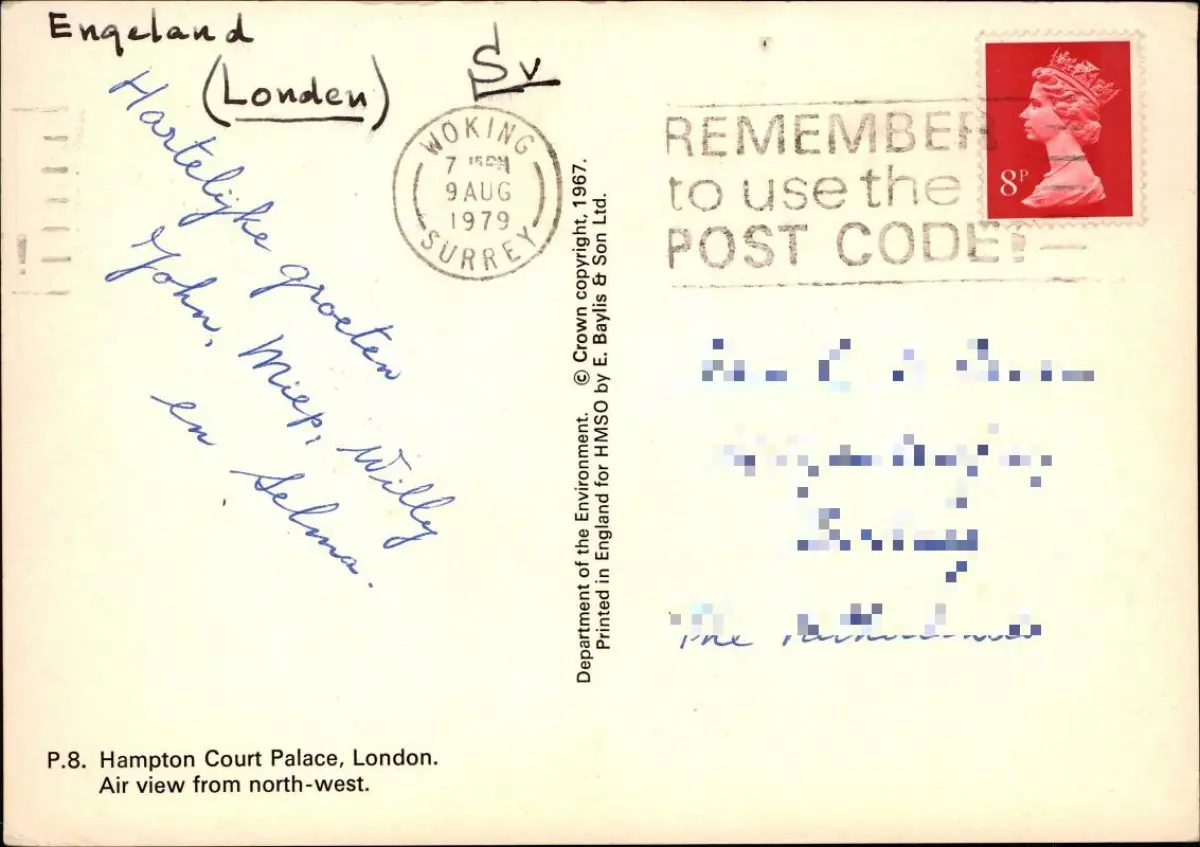 Engeland
(Londen)
Sv
Hartelijke groeten
John, Miep, Willy
en Selma.
WOKING
7 15PM
9 AUG
1979
SURREY
REMEMBER
to use the
POST CODE!
8P
!
Department of the Environment. © Crown copyright, 1967.
Printed in England for HMSO by E. Baylis & Son Ltd.
The
P.8. Hampton Court Palace, London.
Air view from north-west.